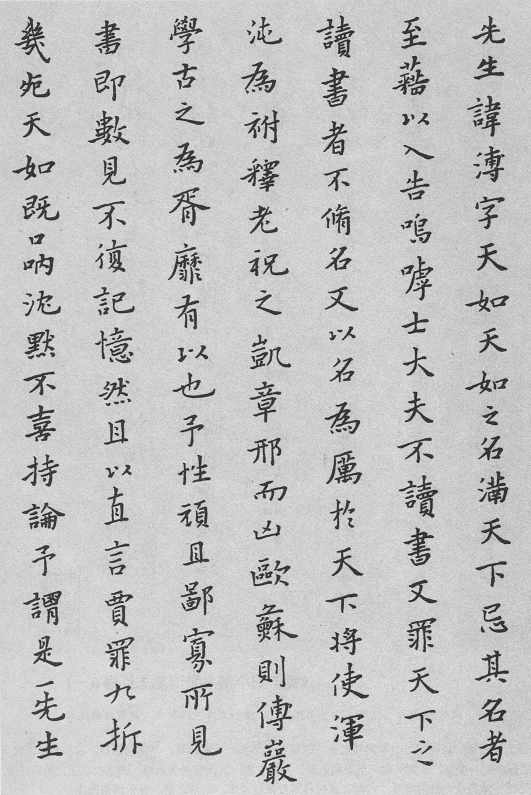 先生諱溥字天如天如之名滿天下忌其名者
至藉以入告嗚嘑士大夫不讀書又罪天下之
讀書者不脩名又以名為厲於天下將使渾
沌為祔釋老祝之凱章邢而凶歐蘇則傅巖
學古之為胥靡有以也予性頑且鄙寡所見
書即數見不復記憶然且以直言賈罪九折
幾死天如既口吶沈默不喜持論予謂是一先生